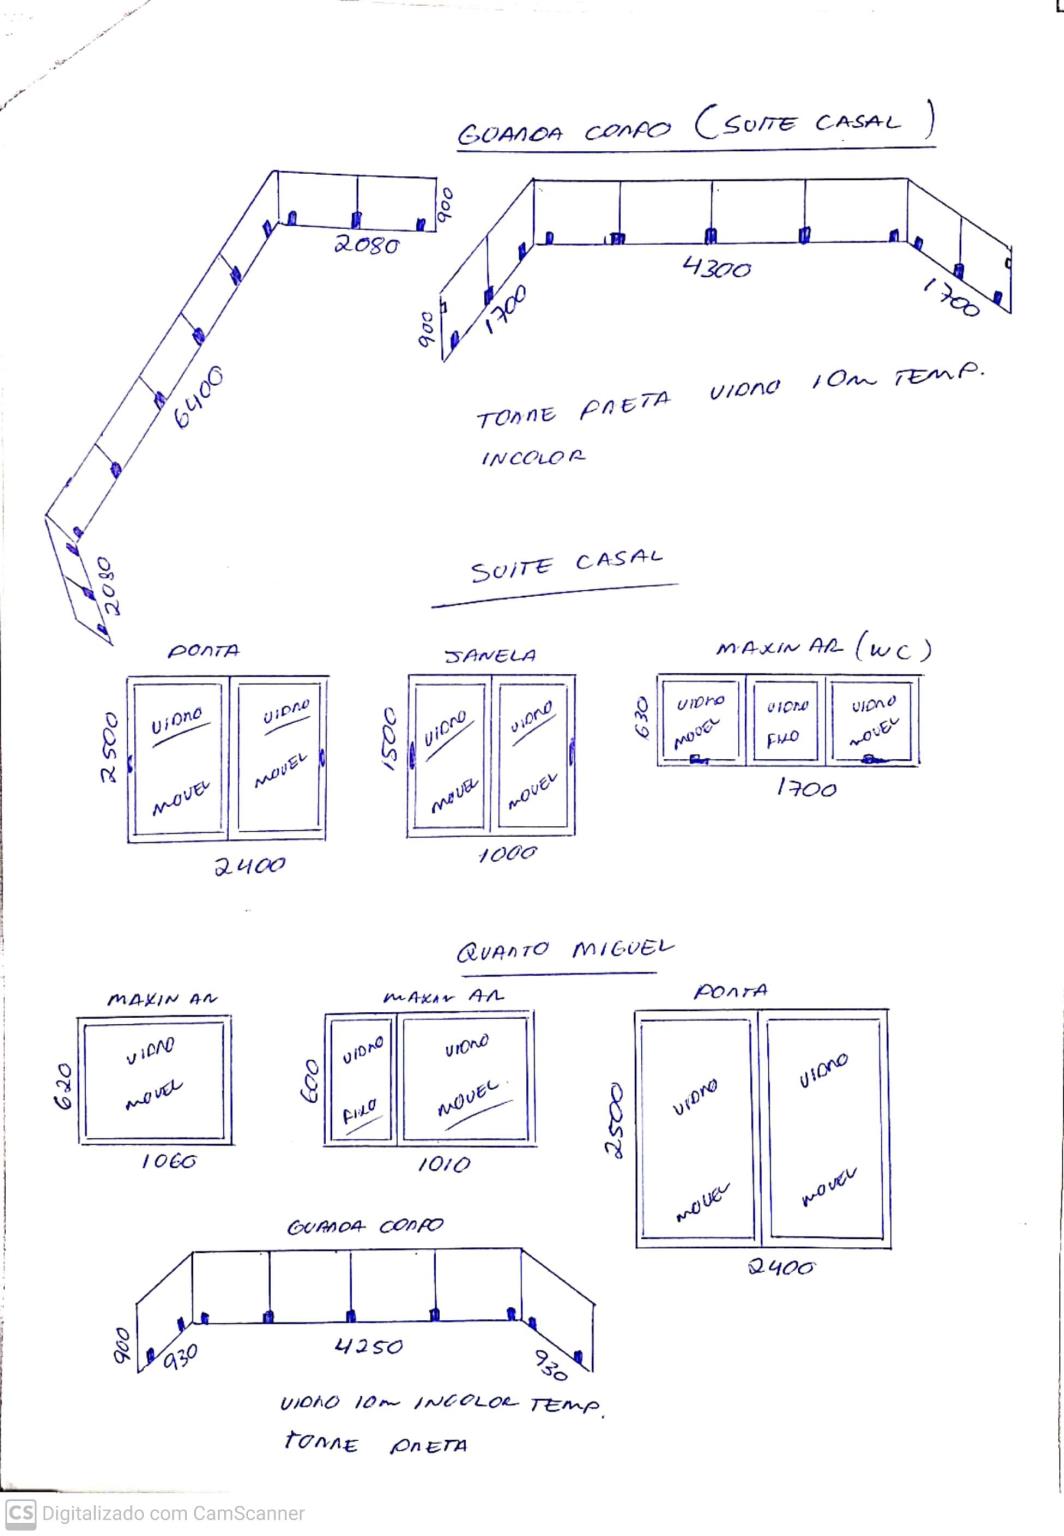 GUARDA CORPO (SUITE CASAL)
2080
900
6400
2080
900
1700
4300
1700
TORRE PRETA VIDRO 10m TEMP.
INCOLOR
SUITE CASAL
PORTA
2500
VIDRO
MOVEL
VIDRO
MOVEL
2400
JANELA
1500
VIDRO
MOVEL
VIDRO
MOVEL
1000
MAXIN AR (WC)
630
VIDRO
MOVEL
VIDRO
FIXO
VIDRO
MOVEL
1700
QUARTO MIGUEL
MAXIN AR
620
VIDRO
MOVEL
1060
MAXIN AR
600
VIDRO
FIXO
VIDRO
MOVEL
1010
PORTA
2500
VIDRO
MOVEL
VIDRO
MOVEL
2400
GUARDA CORPO
900
930
4250
930
VIDRO 10m INCOLOR TEMP.
TORRE PRETA
CS Digitalizado com CamScanner